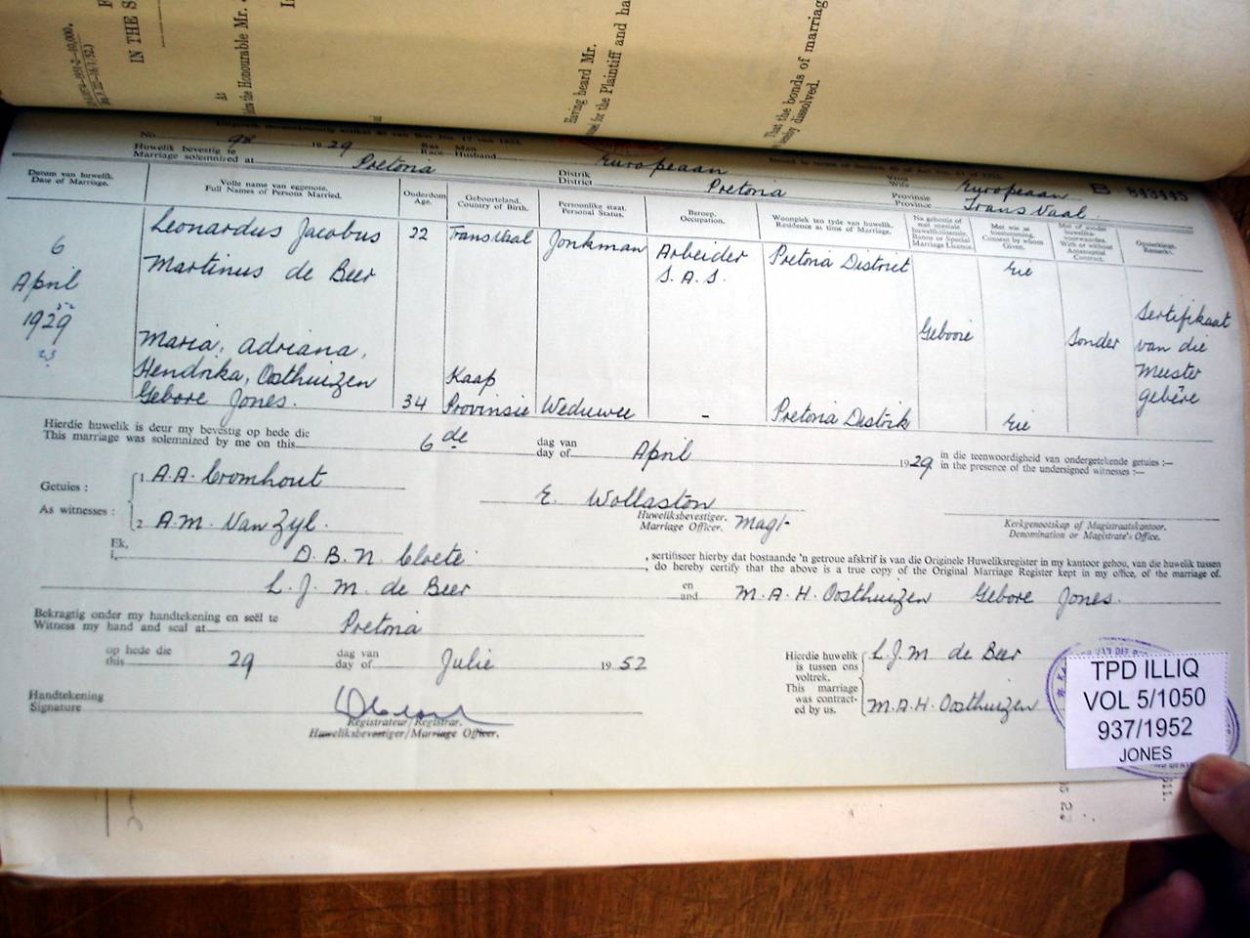 IN THE S
As
the Honourable Mr.
Having heard Mr.
for the Plaintiff and ha
That the bonds of marriag
dissolved.
No. 98 1929 Ras Race Man Husband Europeaan Vrou Wife Europeaan B 843445
Huwelik bevestig te
Marriage solemnized at Pretoria Distrik District Pretoria Provinsie Province Transvaal.
Datum van huwelik. Date of Marriage.
Volle name van eggenote. Full Names of Persons Married.
Ouderdom Age.
Geboorteland. Country of Birth.
Persoonlike staat. Personal Status.
Beroep. Occupation.
Woonplek ten tyde van huwelik. Residence at time of Marriage.
Na gebooie of met spesiale huwelikslisensie. Banns or Special Marriage Licence.
Met wie se toestemming. Consent by whom Given.
Met of sonder huweliks-voorwaardes. With or without Antenuptial Contract.
Opmerkings. Remarks.
6 April 1929
Leonardus Jacobus Martinus de Beer 22 Transvaal Jonkman Arbeider S.A.S. Pretoria District Eie
Maria, Adriana, Hendrika, Oosthuizen Gebore Jones. 34 Kaap Provinsie Weduwee - Pretoria Distrik Eie
Gebooie
Sonder
Sertifikaat van die
Hierdie huwelik is deur my bevestig op hede die
This marriage was solemnized by me on this 6de dag van day of April 1929 in die teenwoordigheid van ondergetekende getuies :—
in the presence of the undersigned witnesses :—
Getuies :
As witnesses :
1 A.A. Cromhout
2 A.M. Van Zyl.
E. Wollaston
Huweliksbevestiger.
Marriage Officer. Mag:
Kerkgenootskap of Magistraatskantoor.
Denomination or Magistrate's Office.
Ek,
I, D. B. N. Cloete , sertifiseer hierby dat bostaande 'n getroue afskrif is van die Originele Huweliksregister in my kantoor gehou, van die huwelik tussen
, do hereby certify that the above is a true copy of the Original Marriage Register kept in my office, of the marriage of.
L. J. M. de Beer en and M. A. H. Oosthuizen Gebore Jones.
Bekragtig onder my handtekening en seël te
Witness my hand and seal at Pretoria
op hede die
this 29 dag van day of Julie 1952
Hierdie huwelik is tussen ons voltrek.
This marriage was contracted by us.
L. J. M de Beer
M. A. H. Oosthuizen
Handtekening
Signature
Registrateur/Registrar.
Huweliksbevestiger/Marriage Officer.
TPD ILLIQ
VOL 5/1050
937/1952
JONES